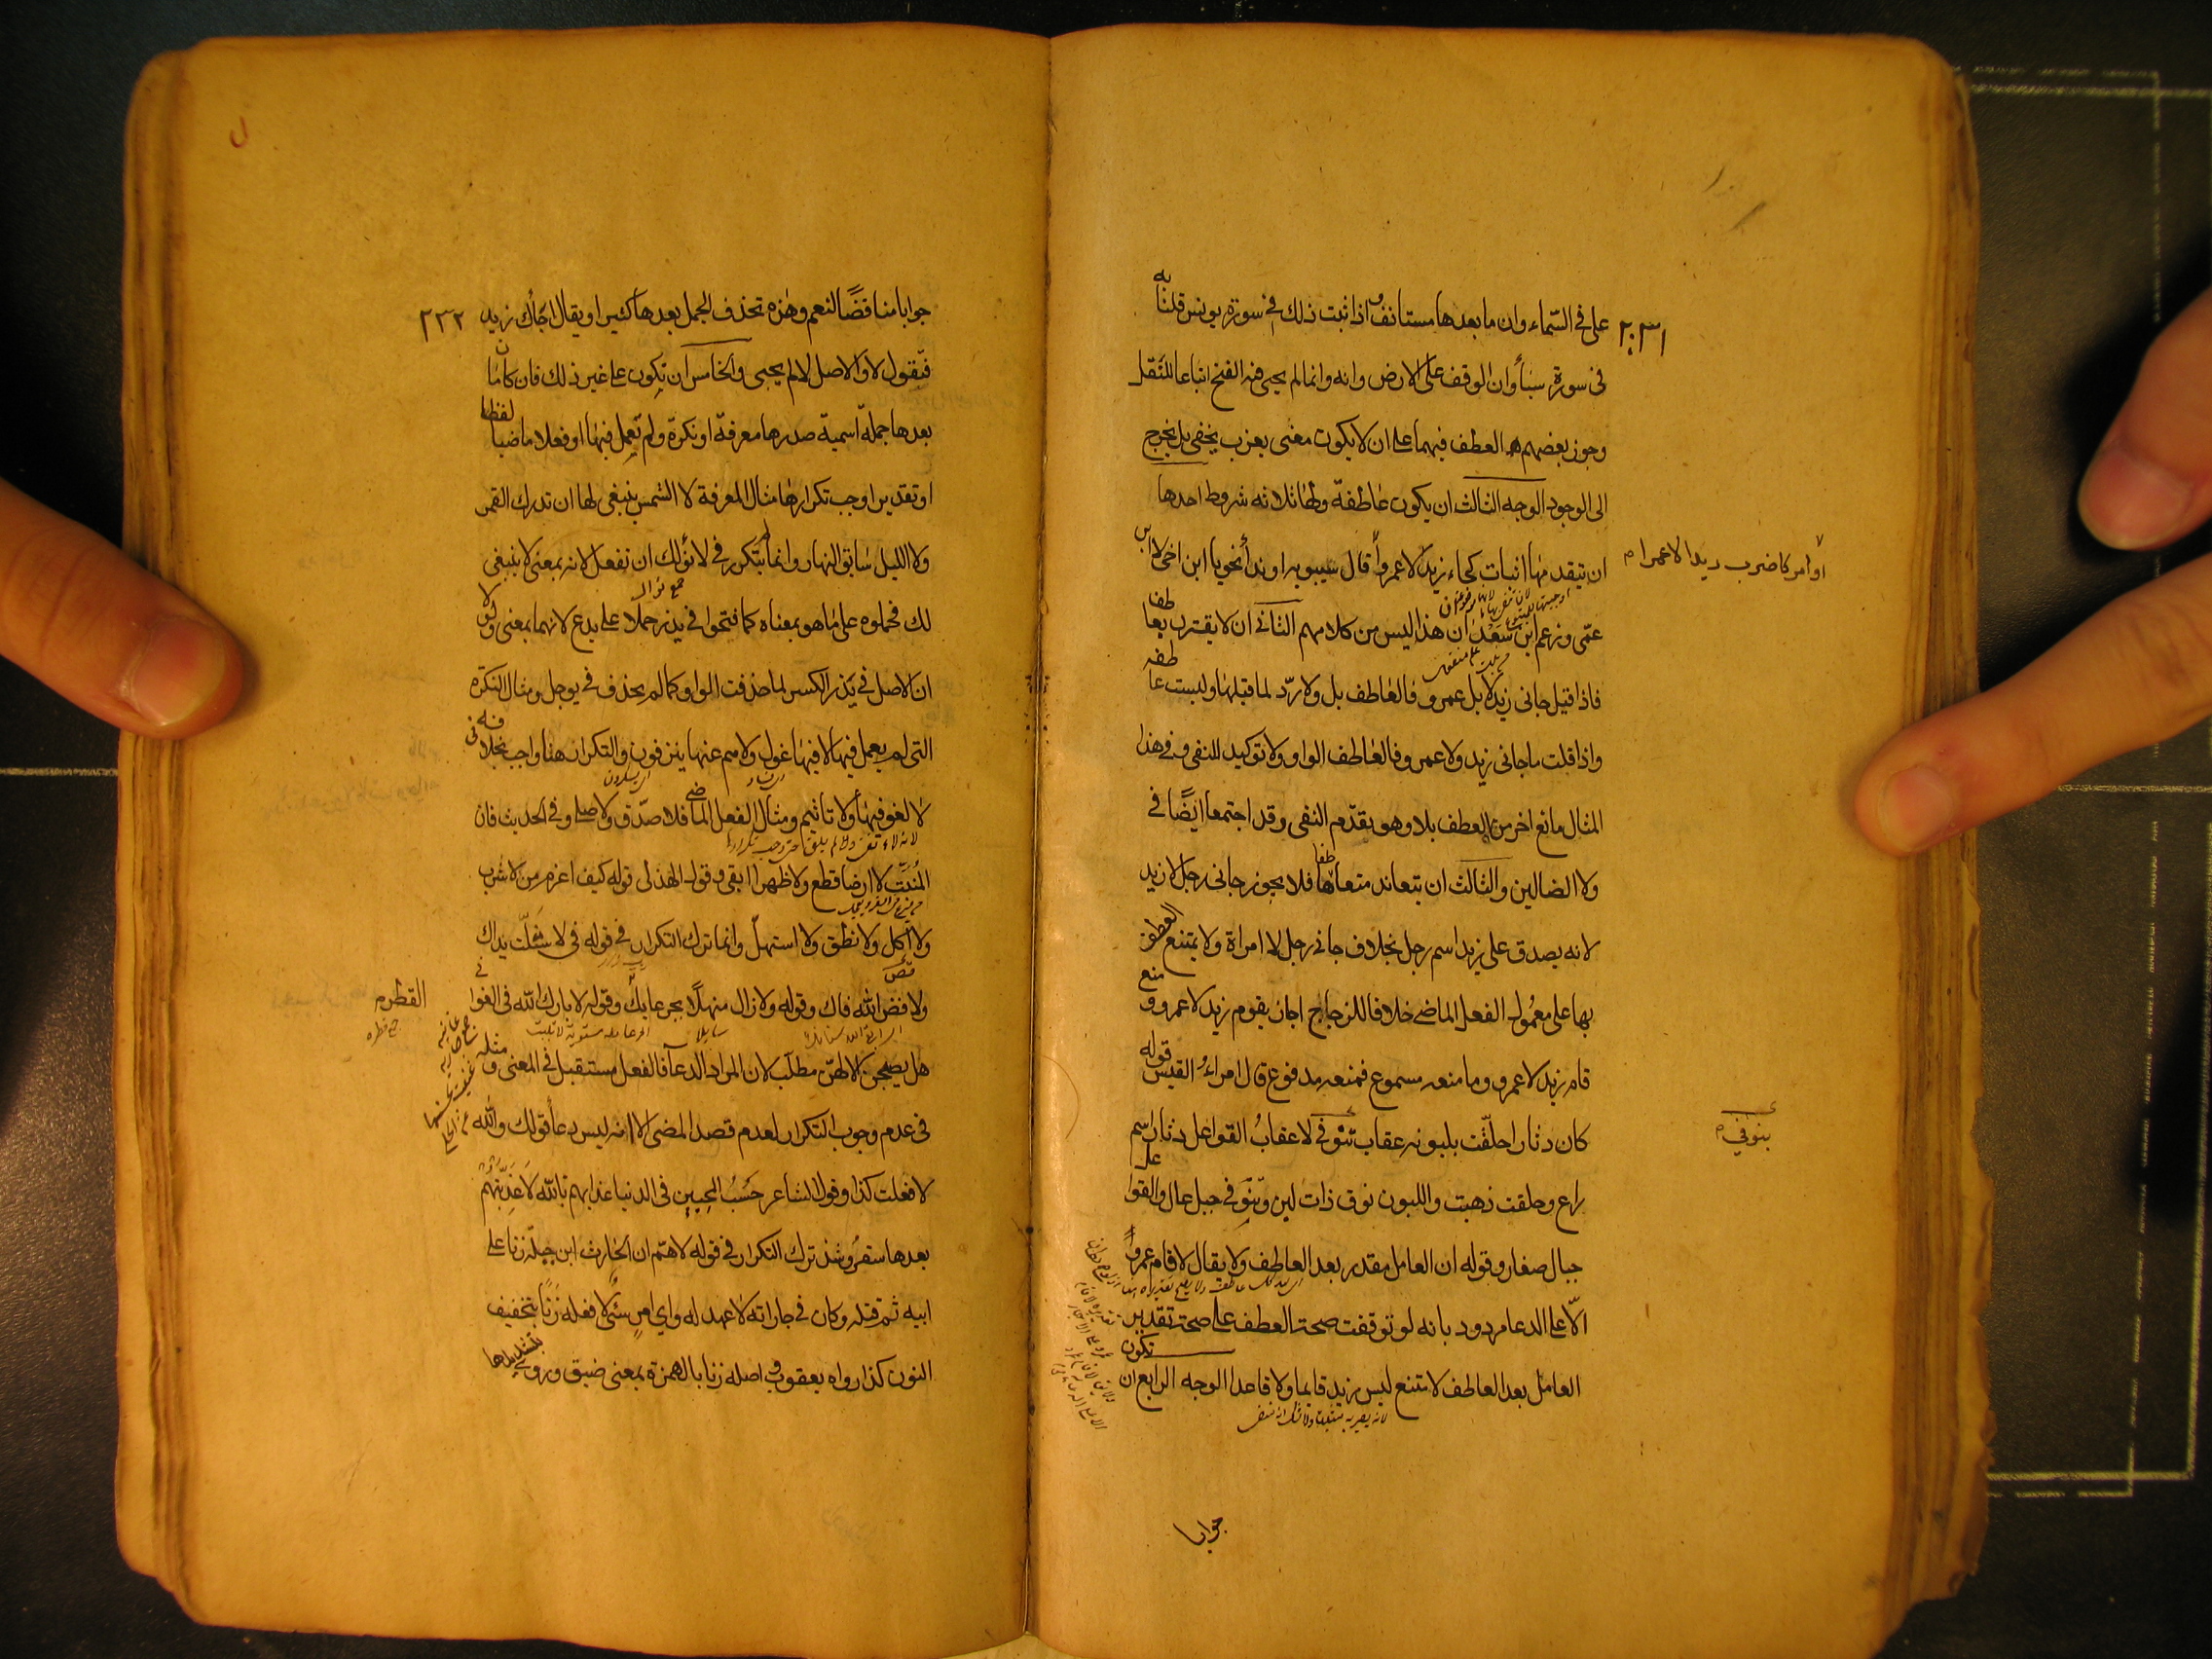 ٢٣١
على فى السماء وان ما بعدها مستانف واذا ثبت ذلك فى سورة يونس قلنا به
فى سورة سبأ وان الوقف على الارض وانه وانما لم يجى فيه الفتح اتباعا للنقل
وجوز بعضهم العطف فيهما على ان لا يكون معنى يعزب يخفى بل يخرج
الى الوجود الوجه الثالث ان يكون عاطفة ولها ثلاثه شروط احدها
ان يتقدمها اثبات كجاء زيد لا عمرو قال سيبويه او ندأ نحو يا ابن اخى لا ابن
او امر كاضرب زيدا لا عمرا م
عمّى وزعم ابن سعدان ان هذا ليس من كلامهم الثانى ان لا يقترن بعاطف
فاذا قيل جانى زيد لا بل عمرو فالعاطف بل ولا ردّ لما قبلها وليست عاطفه
واذا قلت ما جانى زيد ولا عمرو فالعاطف الواو ولا توكيد للنفى وفى هذا
المثال مانع اخر من العطف بلا وهو تقدّم النفى وقد اجتمعا ايضًا فى
ولا الضالين والثالث ان يتعاند متعاطفاها فلا يجوز جانى رجل لا زيد
لانه يصدق على زيد اسم رجل بخلاف جانى رجل لا امراة ولا يمتنع العطف
بها على معمول الفعل الماضى خلافا للزجاج اجاز يقوم زيد لا عمرو ومنع
قام زيد لا عمرو وما منعه مسموع فمنعه مدفوع قال امراء القيس قوله
كان دثارا حلّقت بلبونه عقاب تنوفى لا عقاب القواعل دثار اسم
بنوفي م
راع وحلقت ذهبت واللبون نوق ذات لبن وتنوفى جبل عال والقواعل
جبال صغار وقوله ان العامل مقدر بعد العاطف ولا يقال لا قام عمرو
الّا على الدعا مردود بانه لو توقفت صحت العطف على صحت تقدير
العامل بعد العاطف لامتنع ليس زيد قايما ولا قاعدا الوجه الرابع ان تكون
جوابا
٢٣٢
جوابا مناقضًا لنعم وهذه تحذف الجمل بعدها كثيرا ويقال اجأك زيد
فتقول لا والاصل لا لم يجى والخامس ان تكون على غير ذلك فان كان ما
بعدها جملة اسمية صدرها معرفة او نكرة ولم تعمل فيها او فعلا ماضيا لفظا
او تقديرا وجب تكرارها مثال المعرفة لا الشمس ينبغى لها ان تدرك القمر
ولا الليل سابق النهار وانما لم يتكرر فى لا نولك ان تفعل لانه بمعنى لا ينبغى
لك فحملوه على ما هو بمعناه كما فتحوا فى يذر حملا على يدع لانهما بمعنى ولولا
ان الاصل فى يذر الكسر لما حذفت الواو كما لم يحذف فى يوجل ومثال النكرة
التى لم يعمل فيها لا فيها غول ولا هم عنها ينزفون والتكرار هنا واجب بخلافه فى
لا لغو فيها ولا تاثيم ومثال الفعل الماضى فلا صدّق ولا صلى وفى الحديث فان
المنبتّ لا ارضا قطع ولا ظهرا ابقى وقول الهذلى قوله كيف اغرم من لا شرب
ولا اكل ولا نطق ولا استهلّ وانما ترك التكرار فى قوله فى لا شلّت يداك
ولا فضّ الله فاك وقوله ولا زال منهلّا بجرعائك وقوله لا بارك الله فى الغوا
القطر م
فى هل يصبحن الا لهنّ مطلّب لان المراد الدعآ فالفعل مستقبل فى المعنى ومثله
فى عدم وجوب التكرار لعدم قصد المضى الا انه ليس دعأ قولك والله
لا فعلت كذا وقول الشاعر حسب المحبين فى الدنيا عذابهم تالله لا عذّبتهم
بعدها سقر وشذ ترك التكرار فى قوله لاهمّ ان الحارث ابن جبلة زنا على
ابيه ثم قتله وكان فى جاراته لا عهد له واي امرٍ سئٍ لا فعله زنا بتخفيف
النون كذا رواه يعقوب واصله زنا بالهمزة بمعنى ضيق وروى بتشديدها